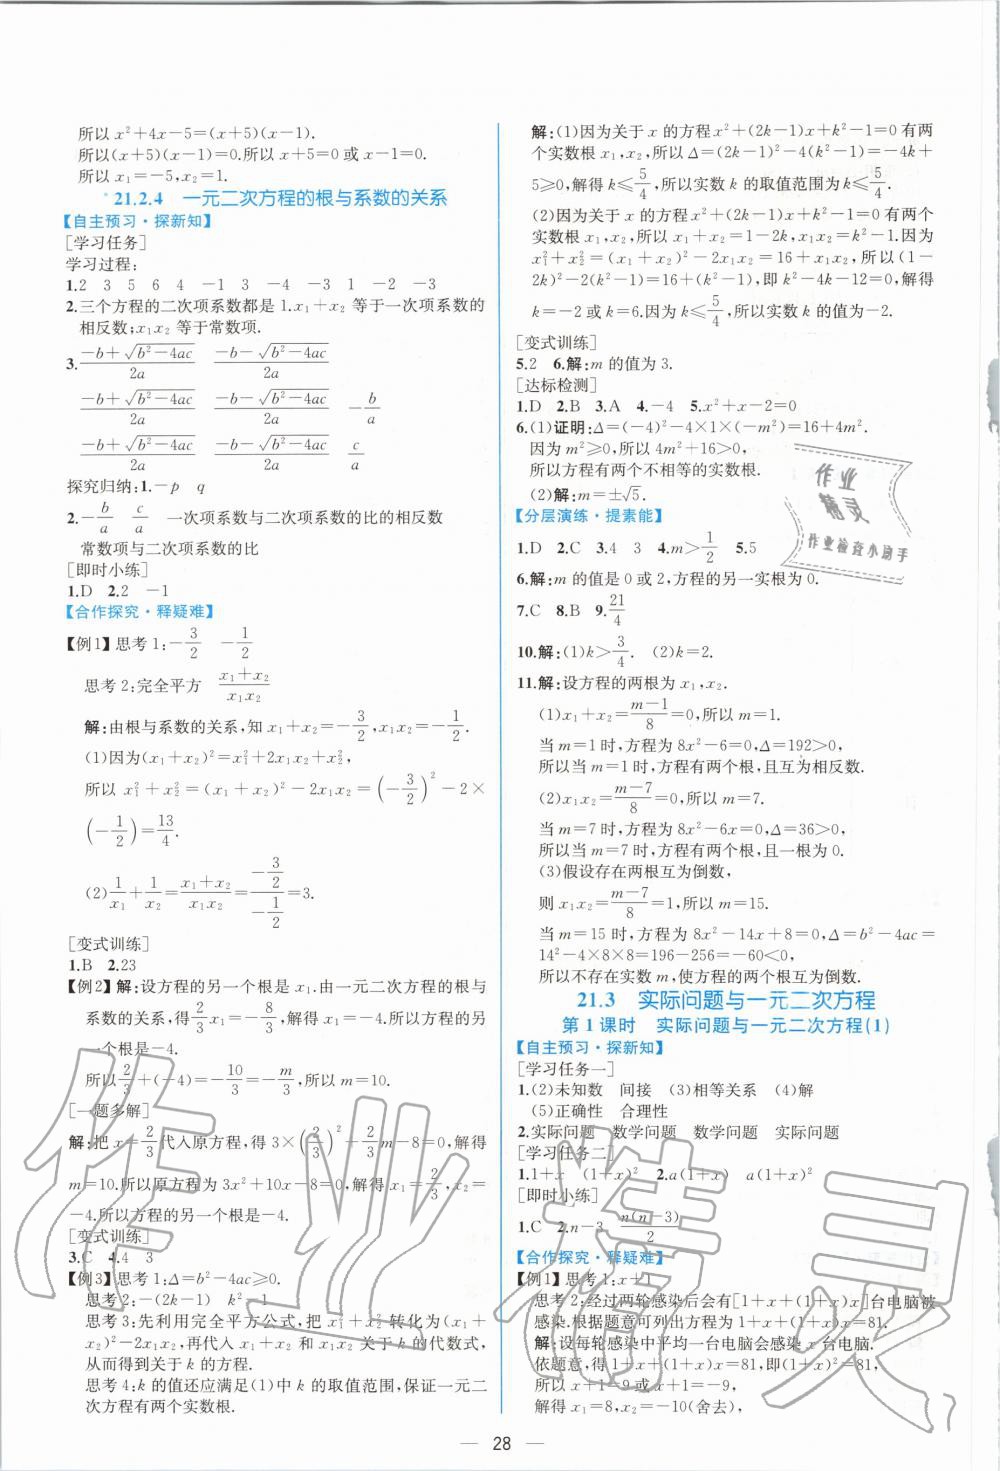 所以 x²+4x−5=(x+5)(x−1).
所以(x+5)(x−1)=0.所以 x+5=0 或 x−1=0.
所以 x₁=−5,x₂=1.
21.2.4 一元二次方程的根与系数的关系
【自主预习·探新知】
[学习任务]
学习过程:
1.2 3 5 6 4 −1 3 −4 −3 1 −2 −3
2.三个方程的二次项系数都是 1.x₁+x₂ 等于一次项系数的
相反数;x₁x₂ 等于常数项.
3.(−b+√(b²−4ac))/2a (−b−√(b²−4ac))/2a
(−b+√(b²−4ac))/2a (−b−√(b²−4ac))/2a −b/a
(−b+√(b²−4ac))/2a (−b−√(b²−4ac))/2a c/a
探究归纳:1.−p q
2.−b/a c/a 一次项系数与二次项系数的比的相反数
常数项与二次项系数的比
[即时小练]
1.D 2.2 −1
【合作探究·释疑难】
【例1】思考1:−3/2 −1/2
思考2:完全平方 (x₁+x₂)/(x₁x₂)
解:由根与系数的关系,知 x₁+x₂=−3/2,x₁x₂=−1/2.
(1)因为(x₁+x₂)²=x₁²+2x₁x₂+x₂²,
所以 x₁²+x₂²=(x₁+x₂)²−2x₁x₂=(−3/2)²−2×
(−1/2)=13/4.
(2)1/x₁+1/x₂=(x₁+x₂)/(x₁x₂)=(−3/2)/(−1/2)=3.
[变式训练]
1.B 2.23
【例2】解:设方程的另一个根是 x₁.由一元二次方程的根与
系数的关系,得 2/3 x₁=−8/3,解得 x₁=−4.所以方程的另
一个根是−4.
所以 2/3+(−4)=−10/3=−m/3.所以 m=10.
[一题多解]
解:把 x=2/3代入原方程,得 3×(2/3)²+2/3m−8=0,解得
m=10.所以原方程为 3x²+10x−8=0,解得 x₁=2/3,x₂=
−4.所以方程的另一个根是−4.
[变式训练]
3.C 4.4 3
【例3】思考1:Δ=b²−4ac≥0.
思考2:−(2k−1) k²−1
思考3:先利用完全平方公式,把 x₁²+x₂² 转化为(x₁+
x₂)²−2x₁x₂,再代入 x₁+x₂ 和 x₁x₂ 关于 k 的代数式,
从而得到关于 k 的方程.
思考4:k 的值还应满足(1)中 k 的取值范围,保证一元二
次方程有两个实数根.
解:(1)因为关于 x 的方程 x²+(2k−1)x+k²−1=0 有两
个实数根 x₁,x₂,所以 Δ=(2k−1)²−4(k²−1)=−4k+
5≥0,解得 k≤5/4,所以实数 k 的取值范围为 k≤5/4.
(2)因为关于 x 的方程 x²+(2k−1)x+k²−1=0 有两个
实数根 x₁,x₂,所以 x₁+x₂=1−2k,x₁x₂=k²−1.因为
x₁²+x₂²=(x₁+x₂)²−2x₁x₂=16+x₁x₂,所以(1−
2k)²−2(k²−1)=16+(k²−1),即 k²−4k−12=0,解得
k=−2 或 k=6.因为 k≤5/4,所以实数 k 的值为−2.
[变式训练]
5.2 6.解:m 的值为 3.
[达标检测]
1.D 2.B 3.A 4.−4 5.x²+x−2=0
6.(1)证明:Δ=(−4)²−4×1×(−m²)=16+4m².
因为 m²≥0,所以 4m²+16>0,
所以方程有两个不相等的实数根.
(2)解:m=±√5.
【分层演练·提素能】
1.D 2.C 3.4 3 4.m>1/2 5.5
6.解:m 的值是 0 或 2,方程的另一实根为 0.
7.C 8.B 9.21/4
10.解:(1)k>3/4. (2)k=2.
11.解:设方程的两根为 x₁,x₂.
(1)x₁+x₂=(m−1)/8=0,所以 m=1.
当 m=1 时,方程为 8x²−6=0,Δ=192>0,
所以当 m=1 时,方程有两个根,且互为相反数.
(2)x₁x₂=(m−7)/8=0,所以 m=7.
当 m=7 时,方程为 8x²−6x=0,Δ=36>0,
所以当 m=7 时,方程有两个根,且一根为 0.
(3)假设存在两根互为倒数,
则 x₁x₂=(m−7)/8=1,所以 m=15.
当 m=15 时,方程为 8x²−14x+8=0,Δ=b²−4ac=
14²−4×8×8=196−256=−60<0,
所以不存在实数 m,使方程的两个根互为倒数.
21.3 实际问题与一元二次方程
第1课时 实际问题与一元二次方程(1)
【自主预习·探新知】
[学习任务一]
1.(2)未知数 间接 (3)相等关系 (4)解
(5)正确性 合理性
2.实际问题 数学问题 数学问题 实际问题
[学习任务二]
1.1+x (1+x)² 2.a(1+x) a(1+x)²
[即时小练]
1.C 2.n−3 n(n−3)/2
【合作探究·释疑难】
【例1】思考1:x+1
思考2:经过两轮感染后会有[1+x+(1+x)x]台电脑被
感染.根据题意可列出方程为 1+x+(1+x)x=81.
解:设每轮感染中平均一台电脑会感染 x 台电脑.
依题意,得 1+x+(1+x)x=81,即(1+x)²=81,
所以 x+1=9 或 x+1=−9,
解得 x₁=8,x₂=−10(舍去),
28
作业
精灵
作业检查小助手
作业精灵